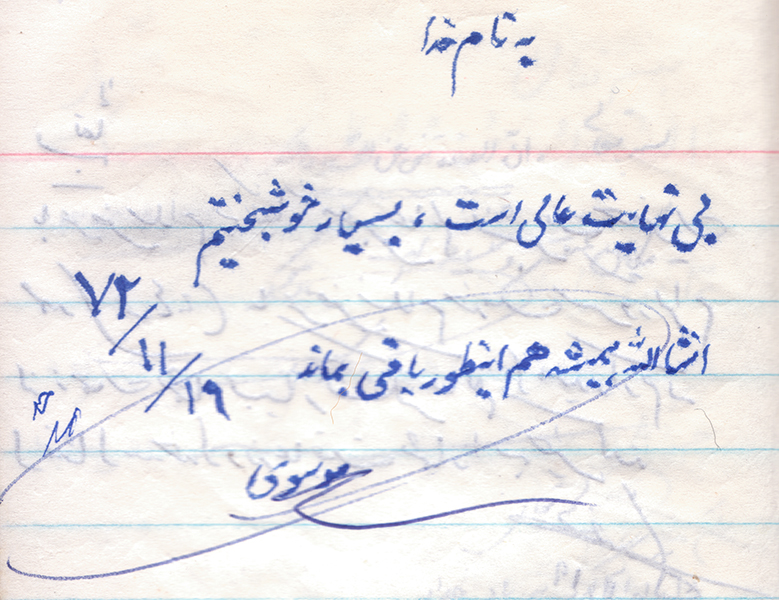 به نام خدا
بی نهایت عالی است ، بسیار خوشبختیم
۷۲/۱۱/۱۹
انشاالله همیشه هم اینطور باقی بماند
موسوی